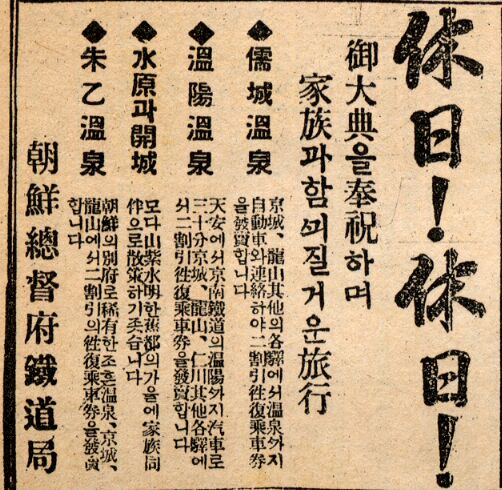 休日！休日！
御大典을奉祝하며
家族과함ᄭᅴ질거운旅行
◆儒城溫泉
京城、龍山其他의各驛에서溫泉ᄭᅡ지
自動車와連絡하야二割引往復乘車券
을發賣합니다
◆溫陽溫泉
天安에서京南鐵道의溫陽ᄭᅡ지汽車로
三十分京城、龍山、仁川其他各驛에
서二割引往復乘車券을發賣합니다
◆水原과開城
모다山紫水明한舊都의가을에家族同
伴으로散策하기좃습니다
◆朱乙溫泉
朝鮮의別府로稀有한조흔溫泉、京城、
龍山에서二割引의往復乘車券을發賣
합니다
朝鮮總督府鐵道局